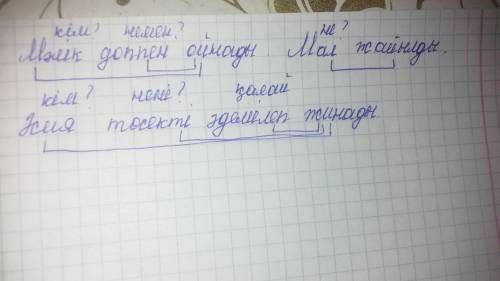 кім? немен? не?
Мәлік доппен ойнады. Мал жайылды.
кім? нені? қалай
Зия төсекті әдемілеп жинады.